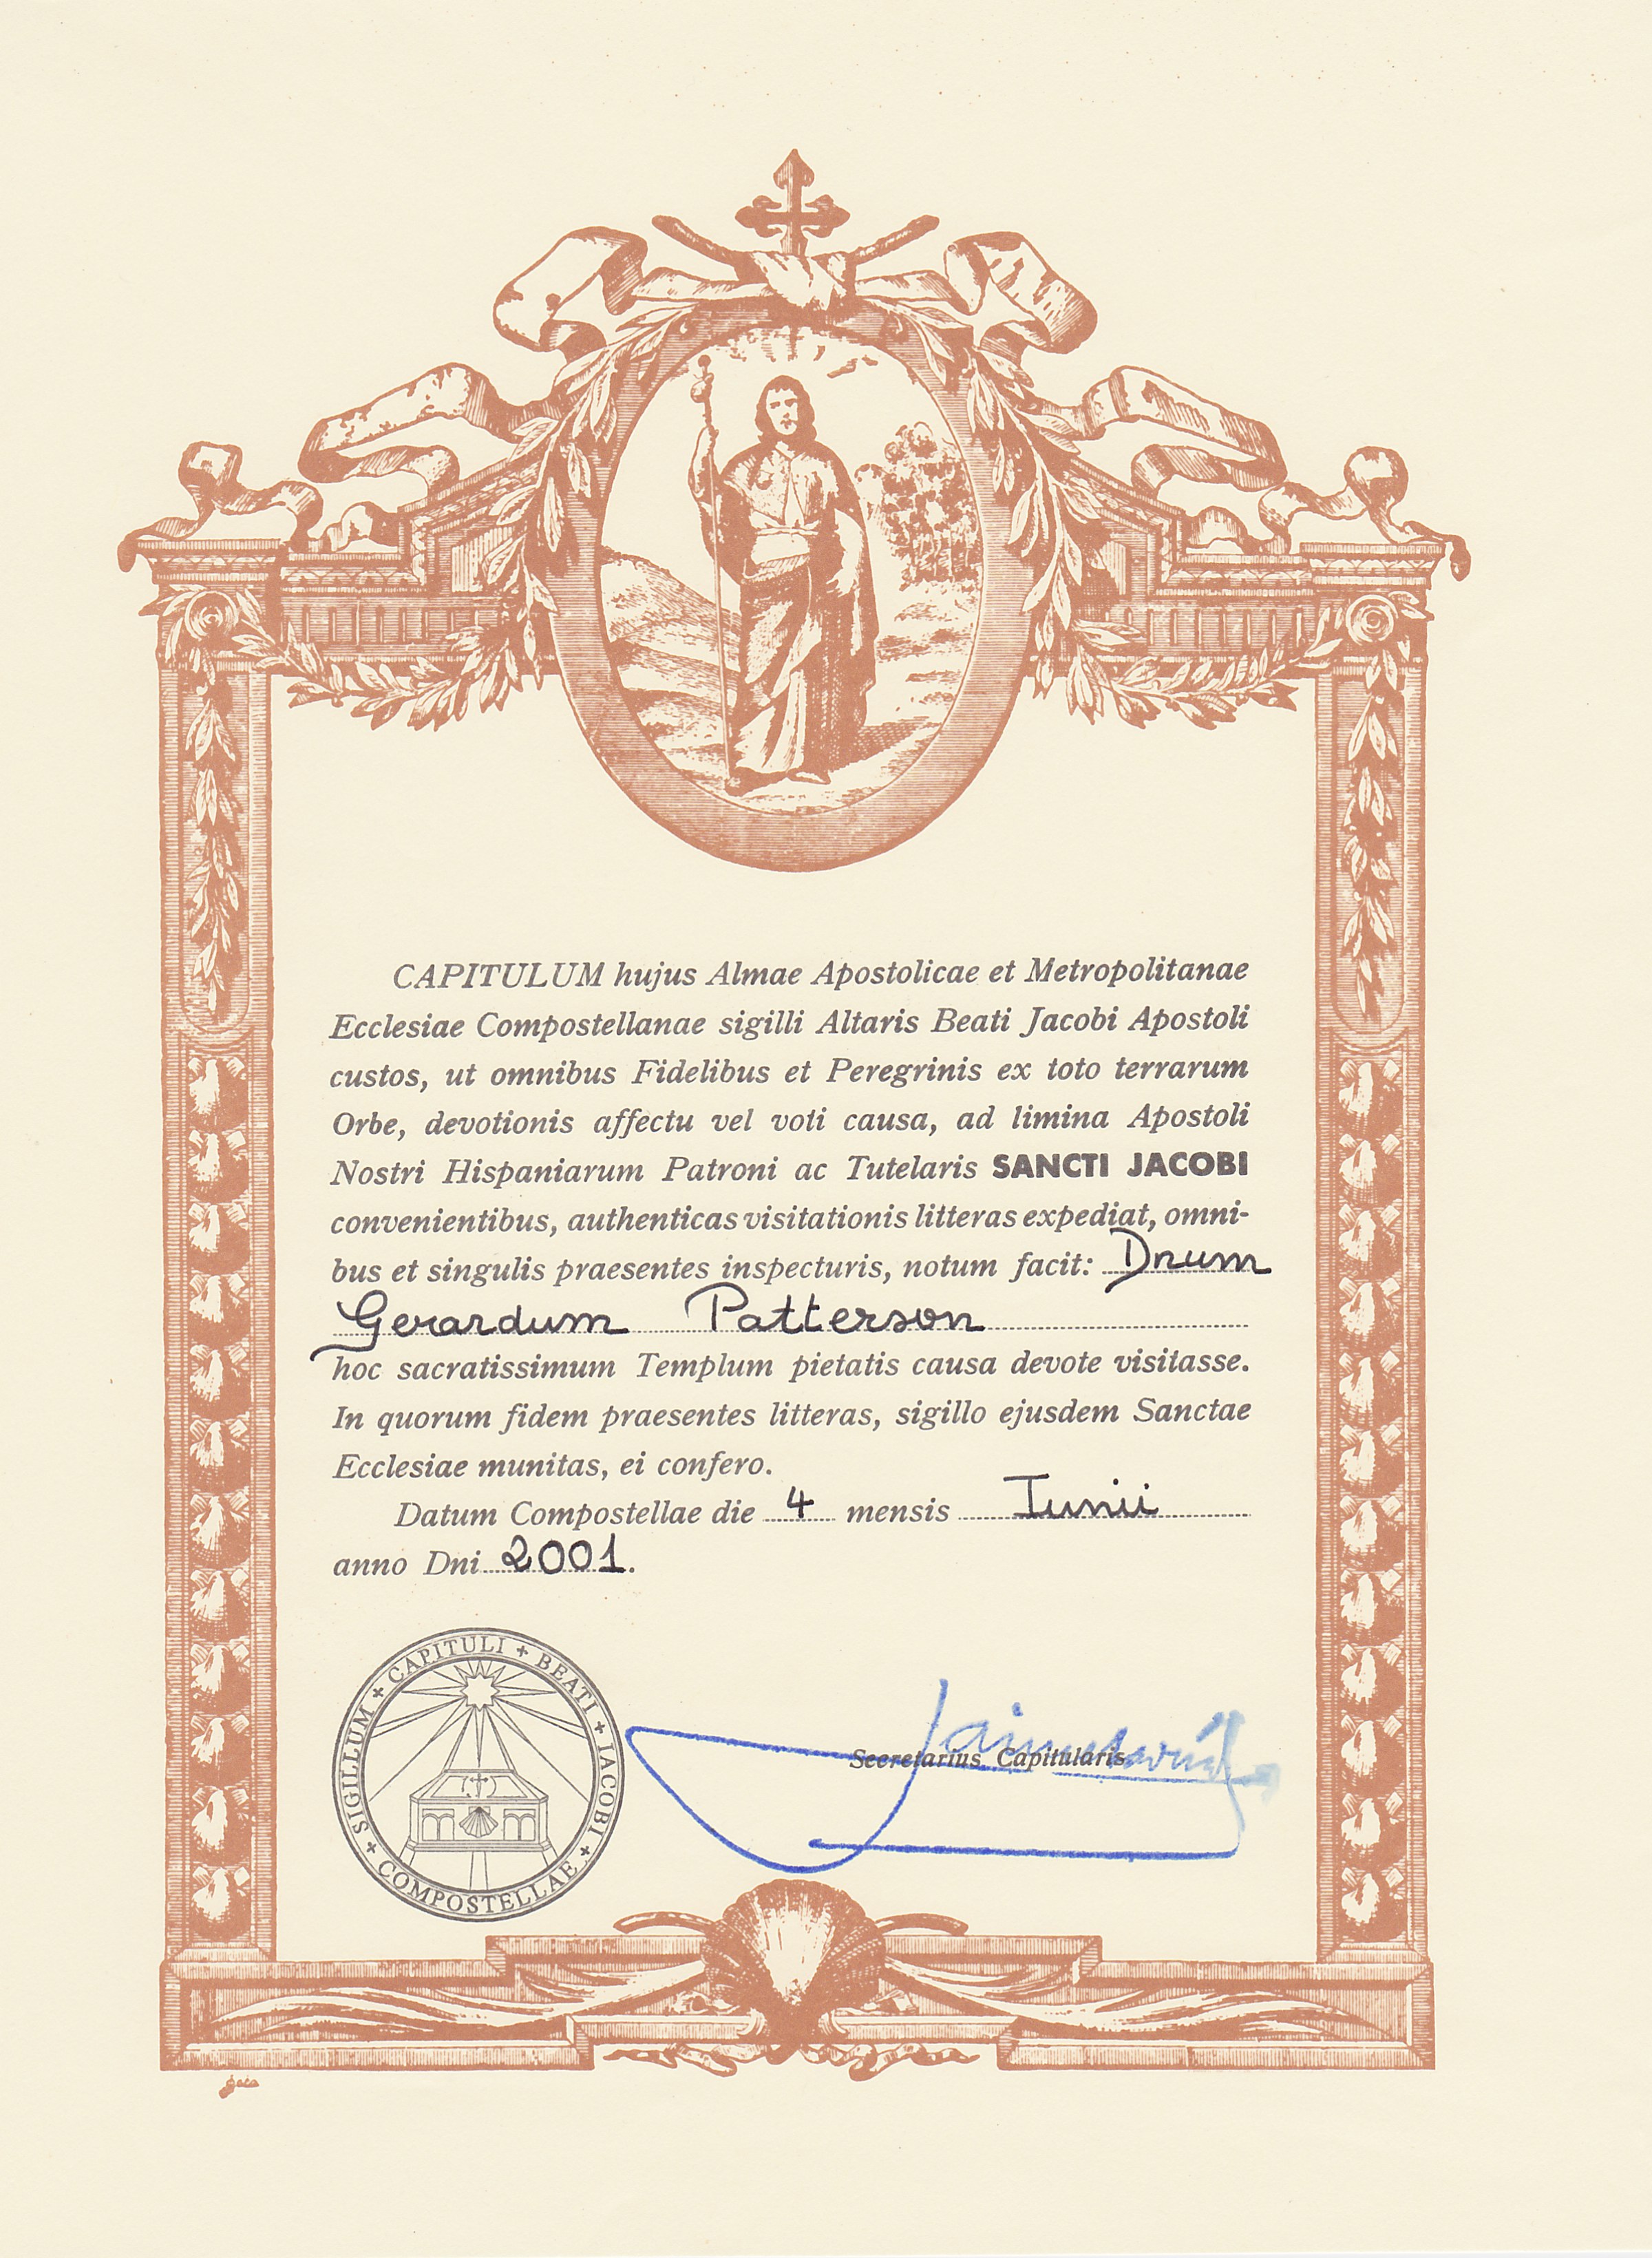 CAPITULUM hujus Almae Apostolicae et Metropolitanae
Ecclesiae Compostellanae sigilli Altaris Beati Jacobi Apostoli
custos, ut omnibus Fidelibus et Peregrinis ex toto terrarum
Orbe, devotionis affectu vel voti causa, ad limina Apostoli
Nostri Hispaniarum Patroni ac Tutelaris SANCTI JACOBI
convenientibus, authenticas visitationis litteras expediat, omni-
bus et singulis praesentes inspecturis, notum facit: Dnum
Gerardum Patterson
hoc sacratissimum Templum pietatis causa devote visitasse.
In quorum fidem praesentes litteras, sigillo ejusdem Sanctae
Ecclesiae munitas, ei confero.
Datum Compostellae die 4 mensis Iunii
anno Dni 2001.
SIGILLUM + CAPITULI + BEATI + IACOBI + COMPOSTELLAE +
Secretarius Capitularis